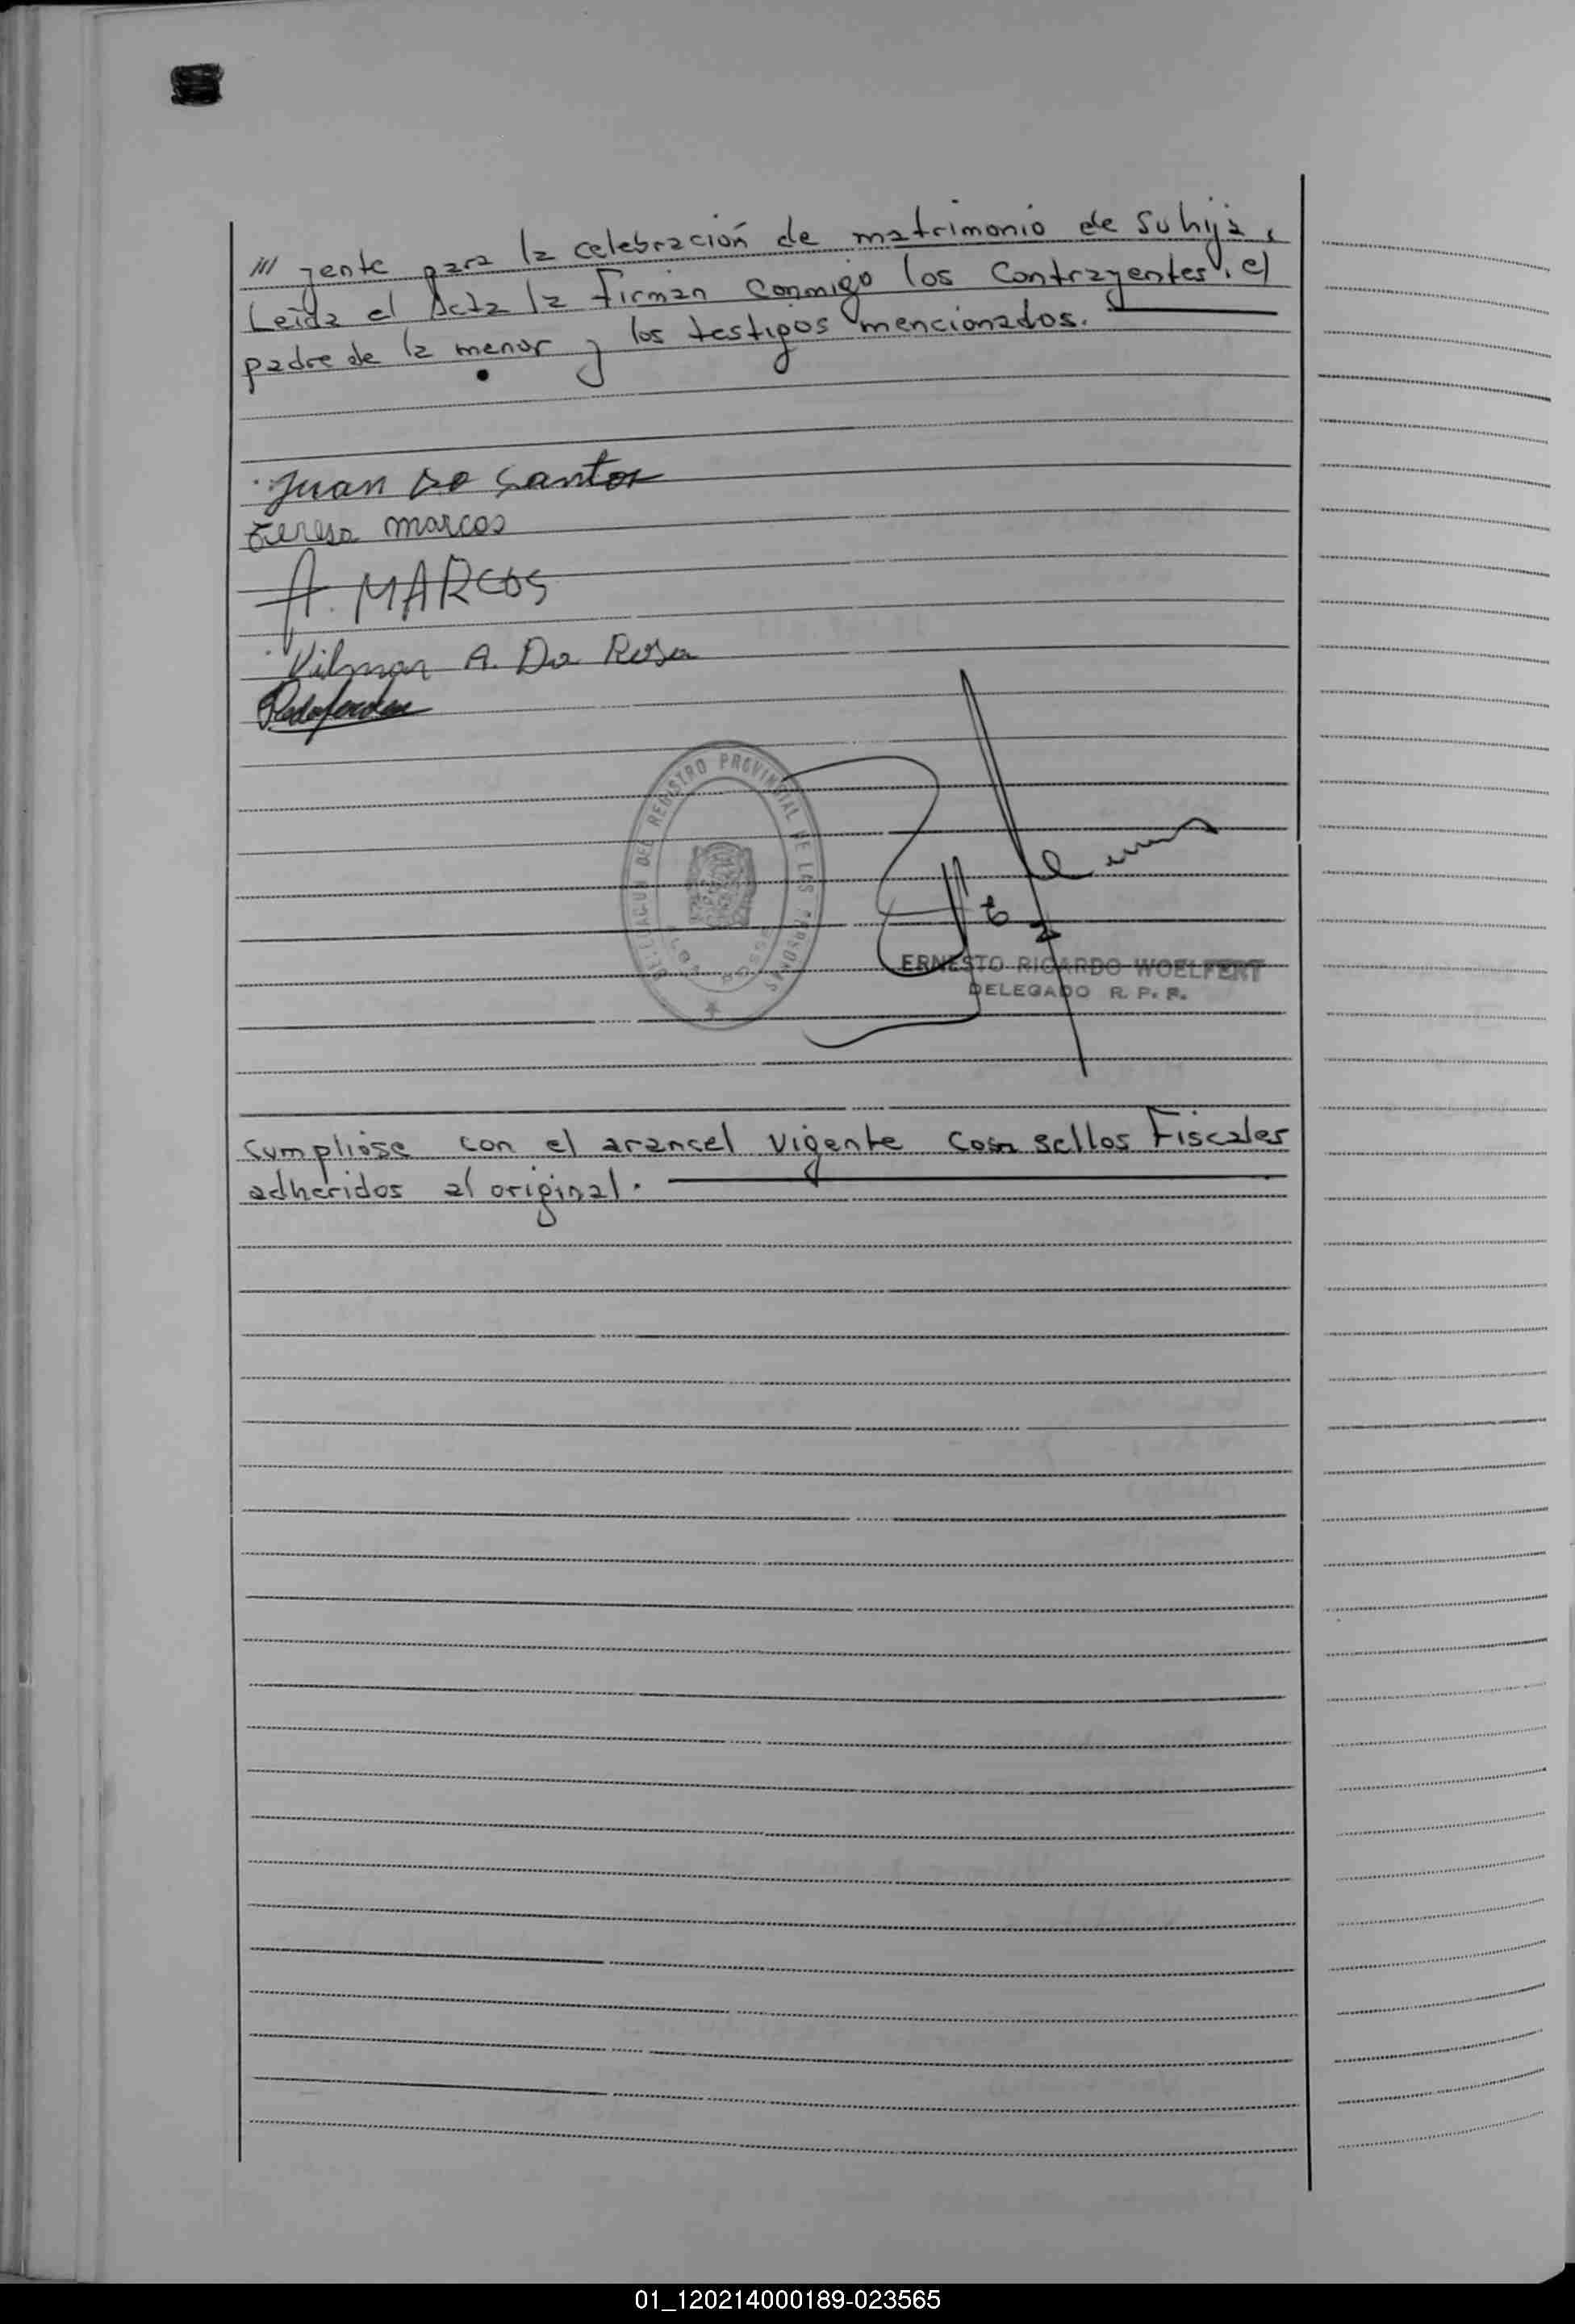 /// yente para la celebración de matrimonio de su hija,
Leida el Acta la firman conmigo los contrayentes, el
padre de la menor y los testigos mencionados.
Juan Do Santos
teresa marcos
A. MARCOS
Vilmar A. Da Rosa
DELEGACION DEL REGISTRO PROVINCIAL DE LAS PERSONAS
ERNESTO RICARDO WOELFERT
DELEGADO R. P. P.
Cumplióse con el arancel vigente con sellos Fiscales
adheridos al original.
01_120214000189-023565